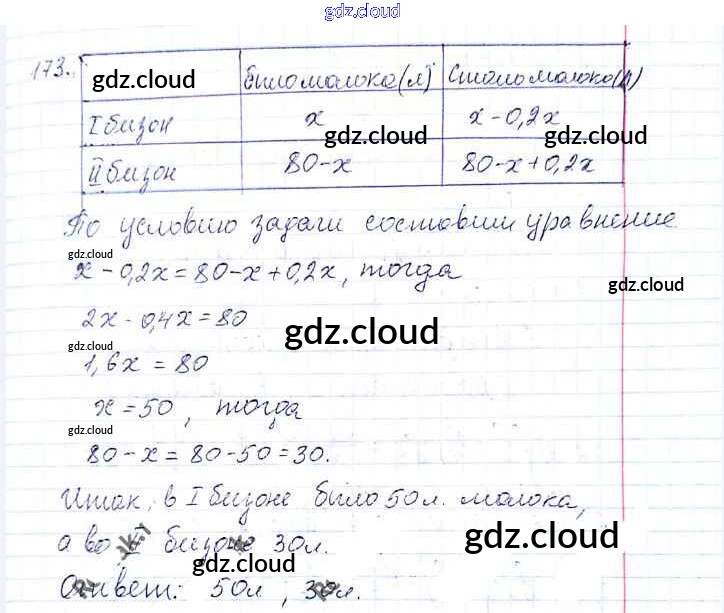 gdz.cloud
173. gdz.cloud было молока (л) Стало молока (л)
I бизон x x - 0,2x
gdz.cloud gdz.cloud
II бизон 80-x 80-x+0,2x
По условию задачи составим уравнение
gdz.cloud
x - 0,2x = 80-x+0,2x, тогда
gdz.cloud
2x - 0,4x = 80
gdz.cloud
gdz.cloud
1,6x = 80
x = 50, тогда
gdz.cloud
80-x = 80-50=30.
Итак, в I бизоне было 50л. молока,
а во II бизоне 30л.
gdz.cloud
gdz.cloud
Ответ: 50л, 30л.